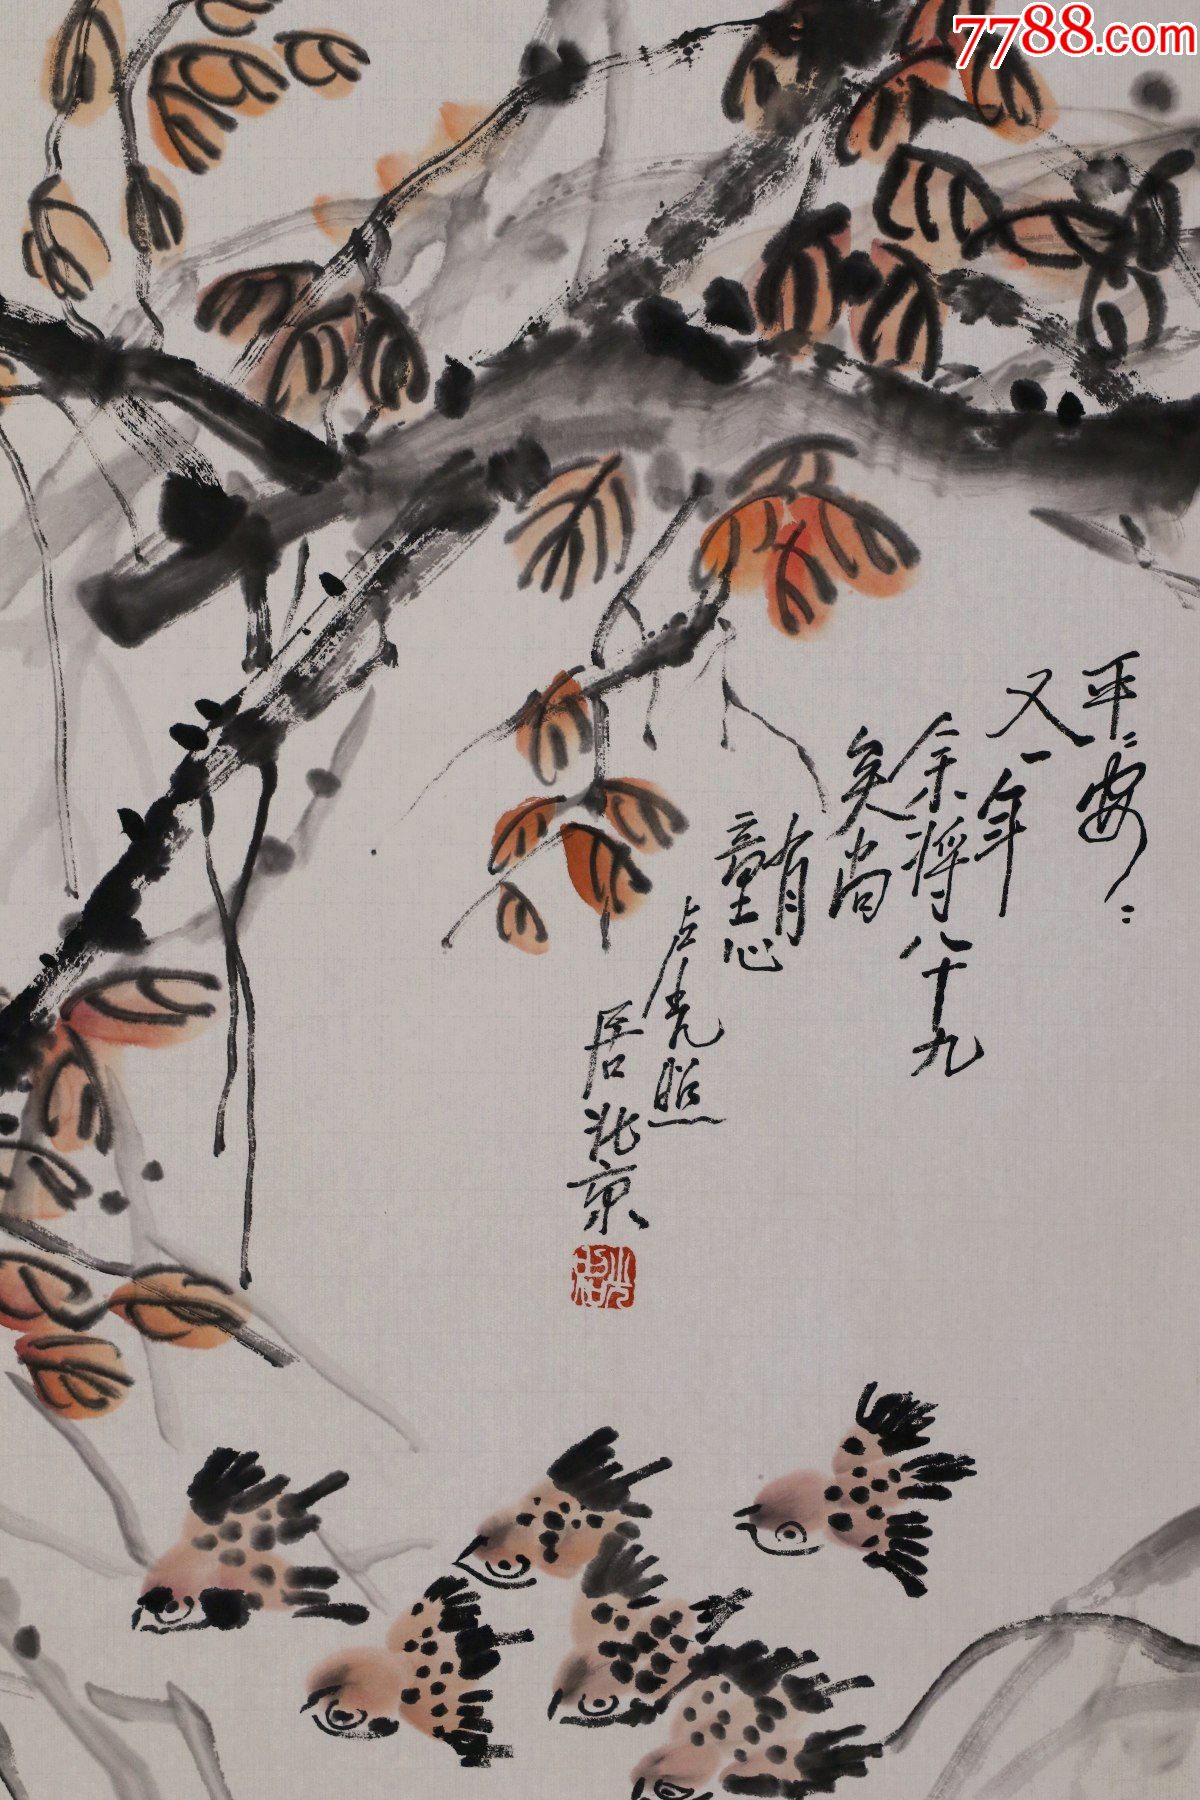 7788.com
平〻安〻
又一年
余将八十九
矣尚
有
童心
卢光照
居北京